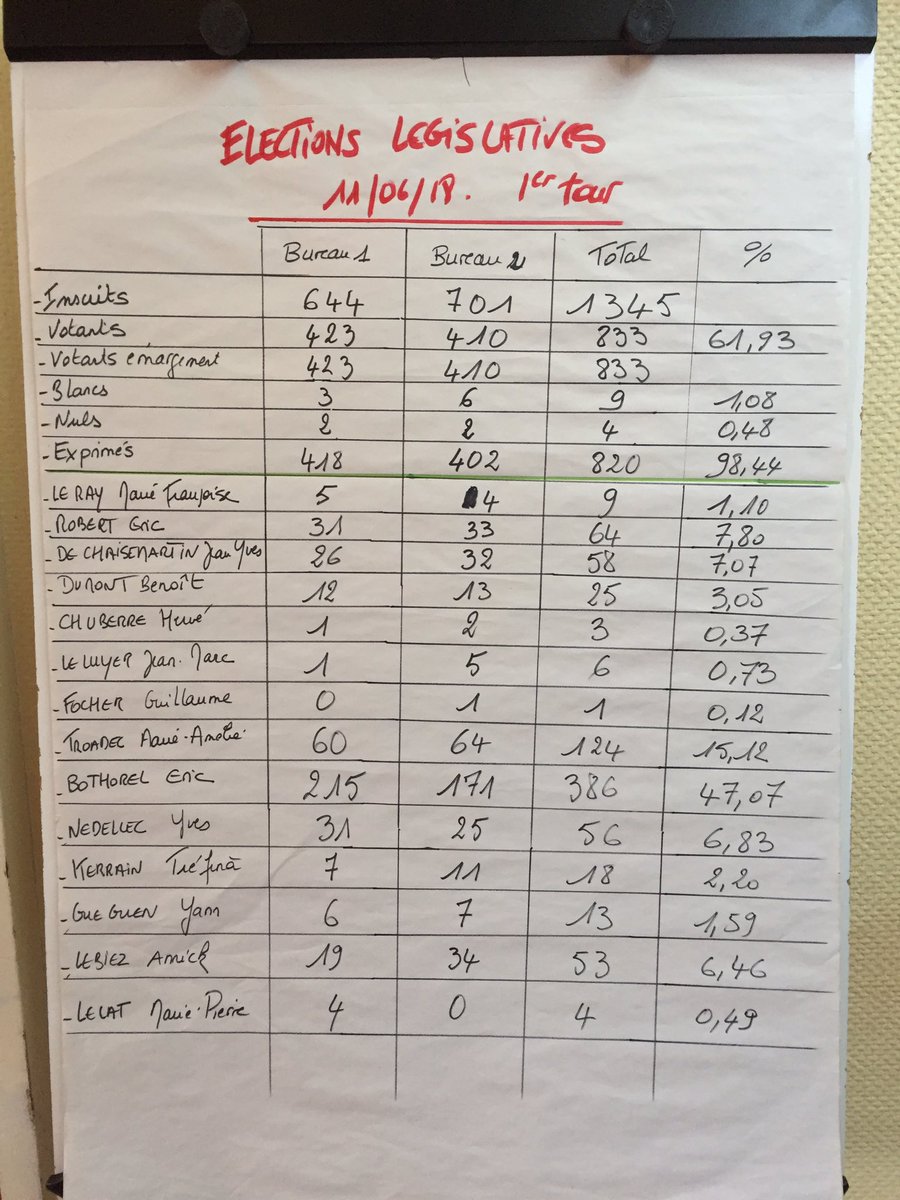 ELECTIONS LEGISLATIVES
11/06/18. 1er tour
Bureau 1 Bureau 2 Total %
- Inscrits 644 701 1345
- Votants 423 410 833 61,93
- Votants émargement 423 410 833
- Blancs 3 6 9 1,08
- Nuls 2 2 4 0,48
- Exprimés 418 402 820 98,44
- LE RAY Marie Françoise 5 4 9 1,10
- ROBERT Eric 31 33 64 7,80
- DE CHAISEMARTIN Jean Yves 26 32 58 7,07
- DUMONT Benoît 12 13 25 3,05
- CHUBERRE Hervé 1 2 3 0,37
- LE LUYER Jean-Marc 1 5 6 0,73
- FOCHER Guillaume 0 1 1 0,12
- TROADEC Marie-Amélie 60 64 124 15,12
- BOTHOREL Eric 215 171 386 47,07
- NEDELLEC Yves 31 25 56 6,83
- KERRAIN Tréfinà 7 11 18 2,20
- GUEGUEN Yann 6 7 13 1,59
- LEBIEZ Annick 19 34 53 6,46
- LECAT Marie-Pierre 4 0 4 0,49